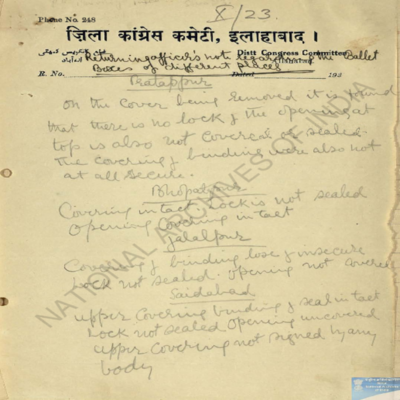 Phone No. 248
X/23.
ज़िला कांग्रेस कमेटी, इलाहाबाद ।
Distt Congress Committee
Returning officer's note regarding the Ballot
R. No.
Boxes of different places
Dated
193
Pratappur
On the cover being removed it is found
that there is no lock & the opening at
top is also not covered or sealed.
The covering & binding were also not
at all secure.
Covering intact. Lock is not sealed
Opening covering intact
Jalalpur
Covering & binding lose & insecure
Lock not sealed. Opening not covered
Saidabad
upper covering binding & seal intact
Lock not sealed Opening uncovered
upper covering not signed by any
body
NATIONAL ARCHIVES OF INDIA